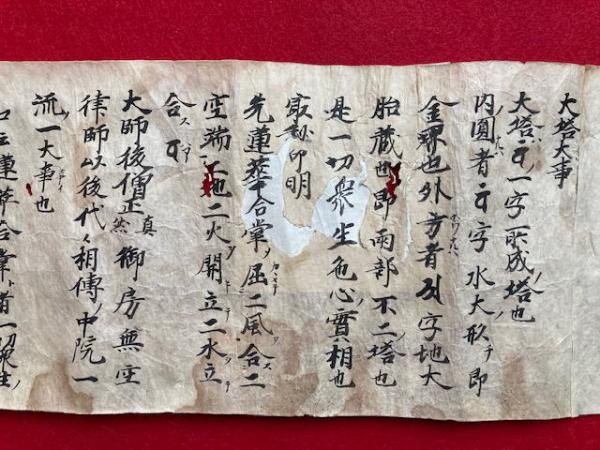 大塔大事
大塔一字所成ノ塔也
内圓者字水大形ナ即
金界也外方者字地大
胎蔵也即兩部不二塔也
是一切衆生色心實相也
最秘印明
先蓮華合掌屈二風合二
空端地二火開立二水立
合ス
大師後僧正真然御房無空
律師以後代々相傳ノ中院一
流ノ一大事也
口云蓮華合掌者一切衆生ノ